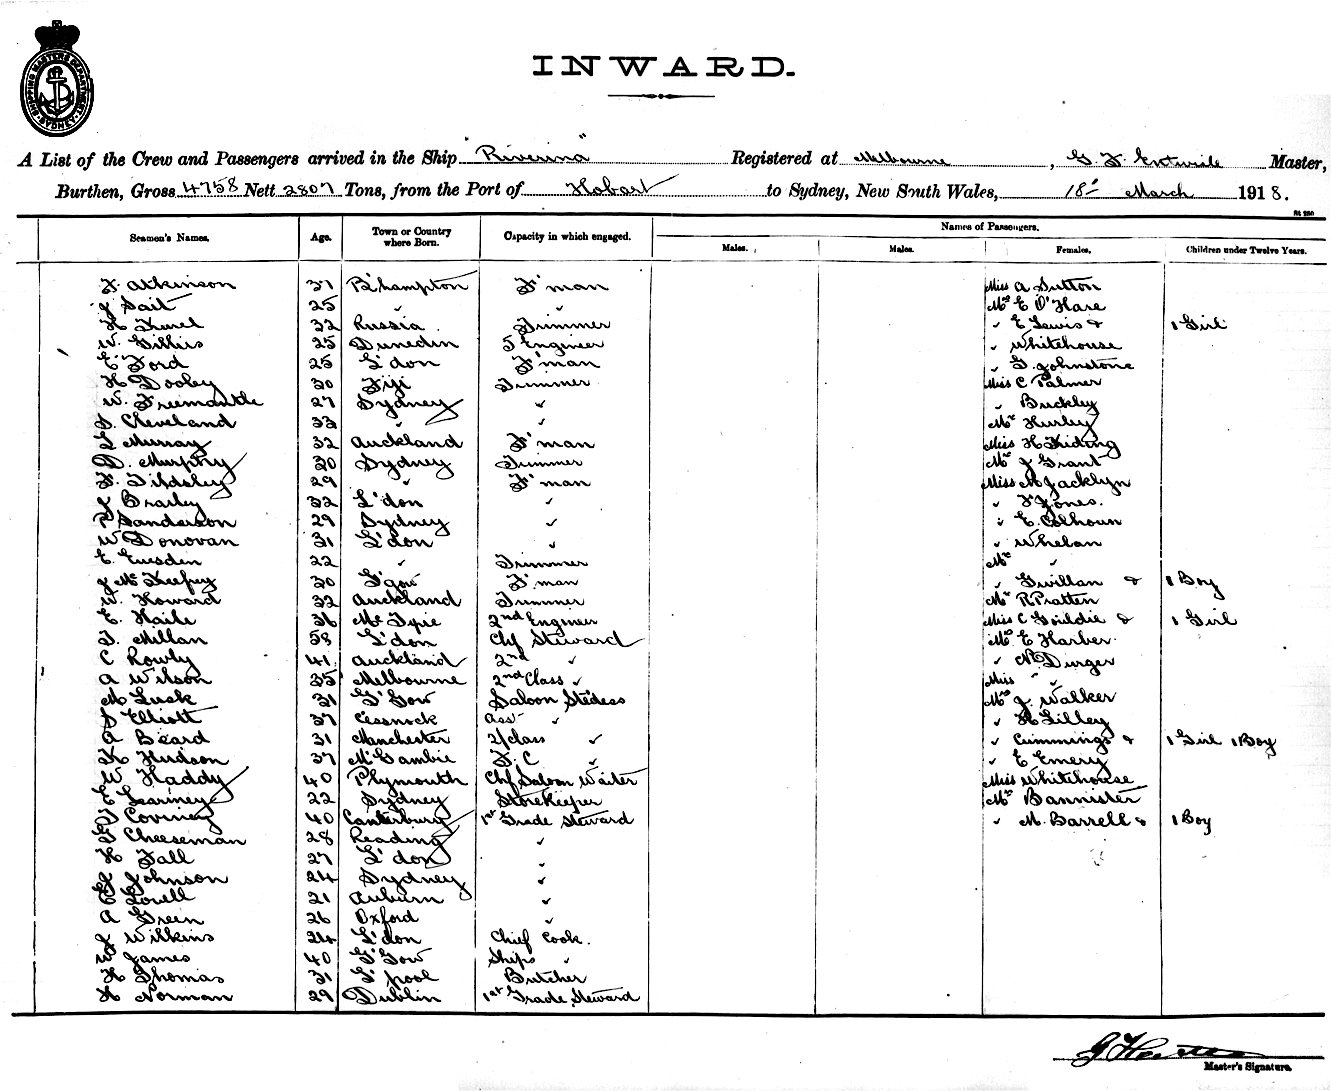 SHIPPING MASTERS DEPARTMENT SYDNEY
INWARD.
A List of the Crew and Passengers arrived in the Ship "Riverina" Registered at Melbourne, G. F. Master,
Burthen, Gross 4758 Nett 2807 Tons, from the Port of Hobart to Sydney, New South Wales, 18th March 1918.
Seamen's Names. Age. Town or Country where Born. Capacity in which engaged. Names of Passengers.
Males. Males. Females. Children under Twelve Years.
F. Atkinson 37 B'hampton F'man Miss A Sutton
J Sait 25 " Mrs E O'Hare
H 32 Russia Trimmer " E Lewis & 1 Girl
W. Gillies 25 Dunedin 5 Engineer " Whitehouse
E Ford 25 L'don F'man " G. Johnstone
H Dooley 30 Fiji Trimmer Miss C Palmer
W. Freemantle 27 Sydney " " Buckley
S. Cleveland 33 " " Mrs Hurley
L Murray 32 Auckland F'man Miss H
D. Murphy 30 Sydney Trimmer Mrs J Grant
F. Tildsley 29 " F'man Miss M Jacklyn
J Brailey 32 L'don " " F Jones.
R Sanderson 29 Sydney " " E. Colhoun
W Donovan 31 L'don " " Whelan
E. 22 " Trimmer Mrs "
J Mc 30 G'gow F'man " Gwillan & 1 Boy
W. Howard 32 Auckland Trimmer Mrs R Pratten
E. Haile 36 Mc Intyre 2nd Engineer Miss C Gouldie & 1 Girl
T. Millan 58 L'don Chf Steward Mrs E Harber.
C Rowly 41 Auckland 2nd " " N Dunger
A Wilson 35 Melbourne 2nd Class " Miss " "
M Lusk 31 G'Gow Saloon Stedess Mrs J. Walker
S Elliott 37 Cessnock Ass " " H Lilley
A Beard 31 Manchester 2/class " " Cummings & 1 Girl 1 Boy
K Hudson 37 Mt Gambier F.C " " E Emery
W Haddy 40 Plymouth Chf Saloon Waiter Miss Whitehouse
E 22 Sydney Storekeeper Mrs Bannister
T Coviney 40 Canterbury 1st Grade Steward " M. Barrell & 1 Boy
G Cheeseman 28 Reading "
H Fall 27 L'don "
J Johnson 24 Sydney "
E Lovell 21 Auburn "
A Green 26 Oxford "
J Wilkins 24 L'don Chief Cook.
W James 40 G'Gow Ships "
H Thomas 31 L'pool Butcher
H Norman 29 Dublin 1st Grade Steward
Master's Signature.